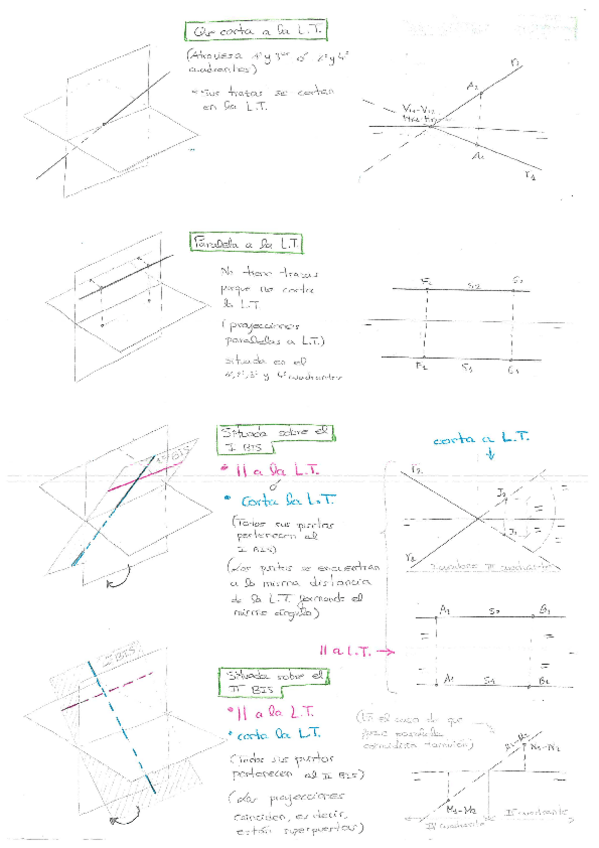 Que corta a la L.T.
(Atraviesa 1º y 3er ó 2º y 4º
cuadrantes)
Sus trazas se cortan
en la L.T.
r2
A2
Vr1-Vr2
Hr1-Hr2
A1
r1
Paralela a la L.T.
No tiene trazas
porque no corta
la L.T.
(proyecciones
paralelas a L.T.)
situada en el
1º, 2º, 3º y 4º cuadrantes
S2
S1
Situada sobre el
I BIS
I BIS
• || a la L.T.
ó
• corta la L.T.
(Todos sus puntos
pertenecen al
I BIS)
(Los puntos se encuentran
a la misma distancia
de la L.T. formando el
mismo ángulo)
corta a L.T.
r2
|| a L.T. →
A1
S1
B1
Situada sobre el
II BIS
II BIS
• || a la L.T.
• corta la L.T.
(todos sus puntos
pertenecen al II BIS)
(Las proyecciones
coinciden, es decir,
están superpuestas)
(Es el caso de que
coincidiría también)
N1-N2
M1-M2
IV cuadrante
II cuadrante